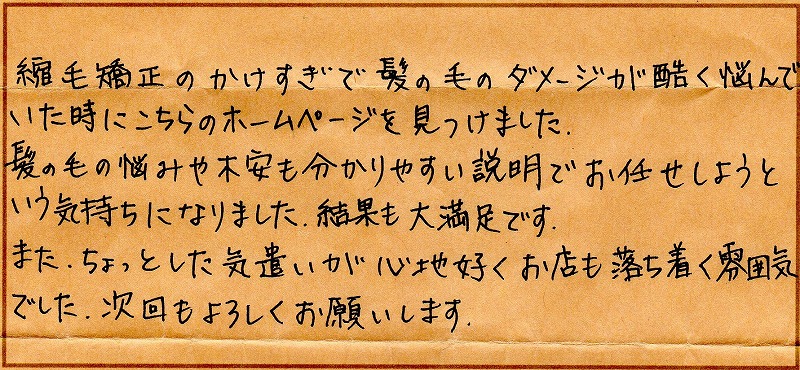 縮毛矯正のかけすぎで髪の毛のダメージが酷く悩んで
いた時にこちらのホームページを見つけました.
髪の毛の悩みや不安も分かりやすい説明でお任せしようと
いう気持ちになりました.結果も大満足です.
また.ちょっとした気遣いが心地好くお店も落ち着く雰囲気
でした.次回もよろしくお願いします.